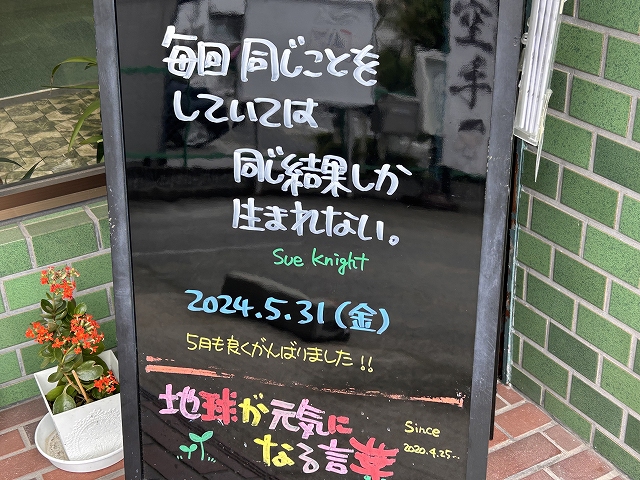 毎回同じことを
していては
同じ結果しか
生まれない。
Sue Knight
2024.5.31(金)
5月も良くがんばりました!!
地球が元気に
なる言葉
Since
2020.4.25..
空手